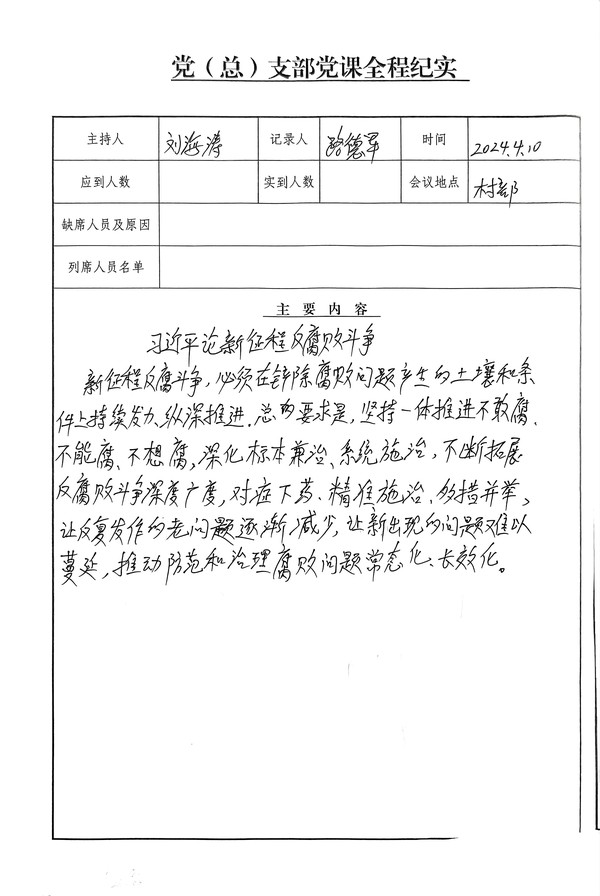 党（总）支部党课全程纪实
主持人 刘海涛 记录人 路德军 时间 2024.4.10
应到人数 实到人数 会议地点 村部
缺席人员及原因
列席人员名单
主要内容
习近平论新征程反腐败斗争
新征程反腐斗争，必须在铲除腐败问题产生的土壤和条
件上持续发力、纵深推进。总的要求是，坚持一体推进不敢腐、
不能腐、不想腐，深化标本兼治、系统施治，不断拓展
反腐败斗争深度广度，对症下药、精准施治、多措并举，
让反复发作的老问题逐渐减少，让新出现的问题难以
蔓延，推动防范和治理腐败问题常态化、长效化。